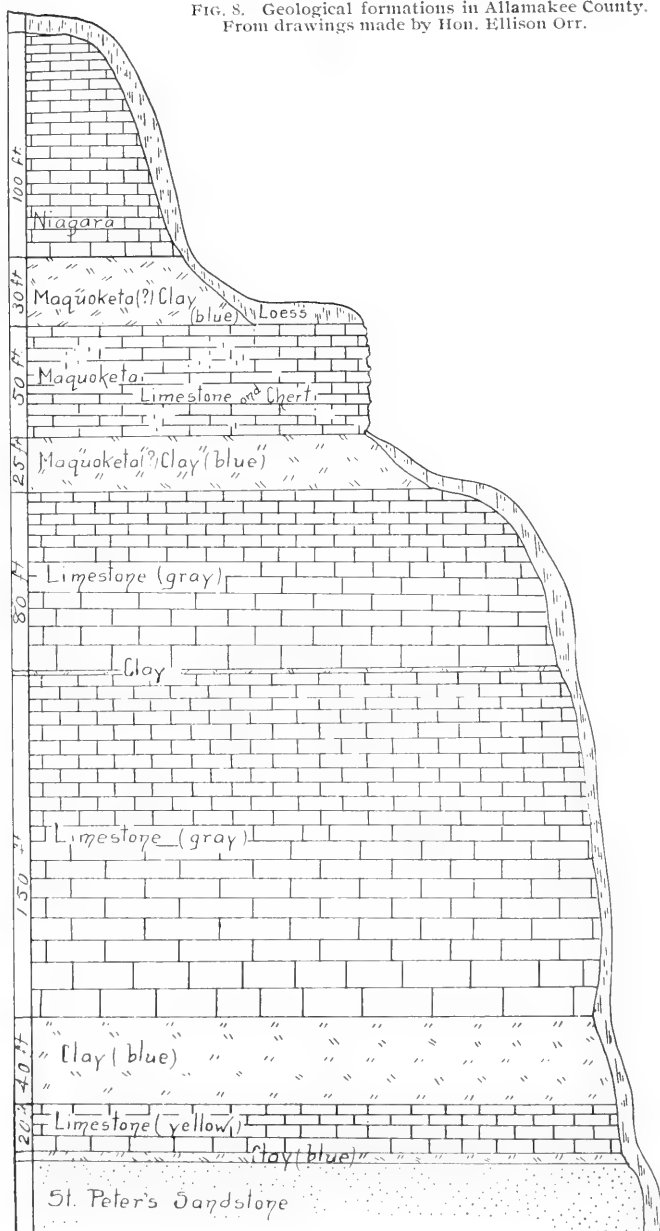 FIG. 8. Geological formations in Allamakee County.
From drawings made by Hon. Ellison Orr.
100 ft.
Niagara
30 ft
Maquoketa(?) Clay
(blue)
Loess
50 ft
Maquoketa
Limestone and Chert
25 ft
Maquoketa(?) Clay (blue)
80 ft
Limestone (gray)
Clay
150 ft
Limestone (gray)
40 ft
Clay (blue)
20
Limestone (yellow)
Clay (blue)
St. Peter's Sandstone